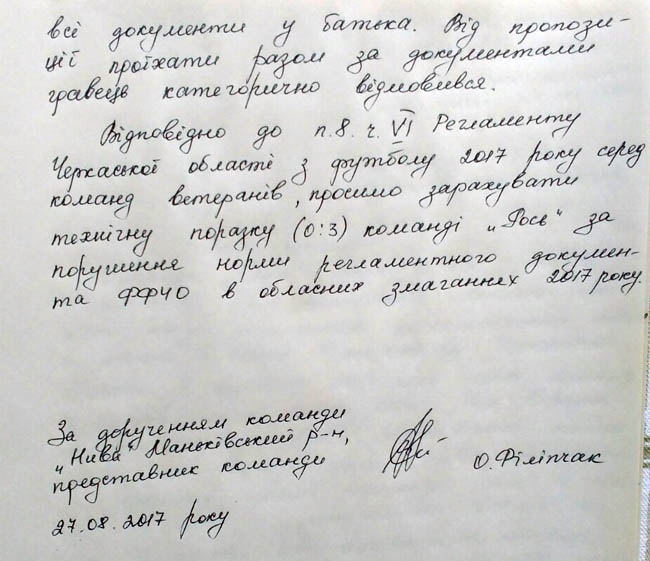 всі документи у батька. Від пропози-
ції проїхати разом за документами
гравець категорично відмовився.
Відповідно до п.8. ч. VI Регламенту
Черкаської області з футболу 2017 року серед
команд ветеранів, просимо зарахувати
технічну поразку (0:3) команді „Рось“ за
порушення норми регламентного докумен-
та ФФЧО в обласних змаганнях 2017 року.
За дорученням команди
„Нива“ Маньківський р-н,
представник команди
О. Філіпчак
27.08.2017 року